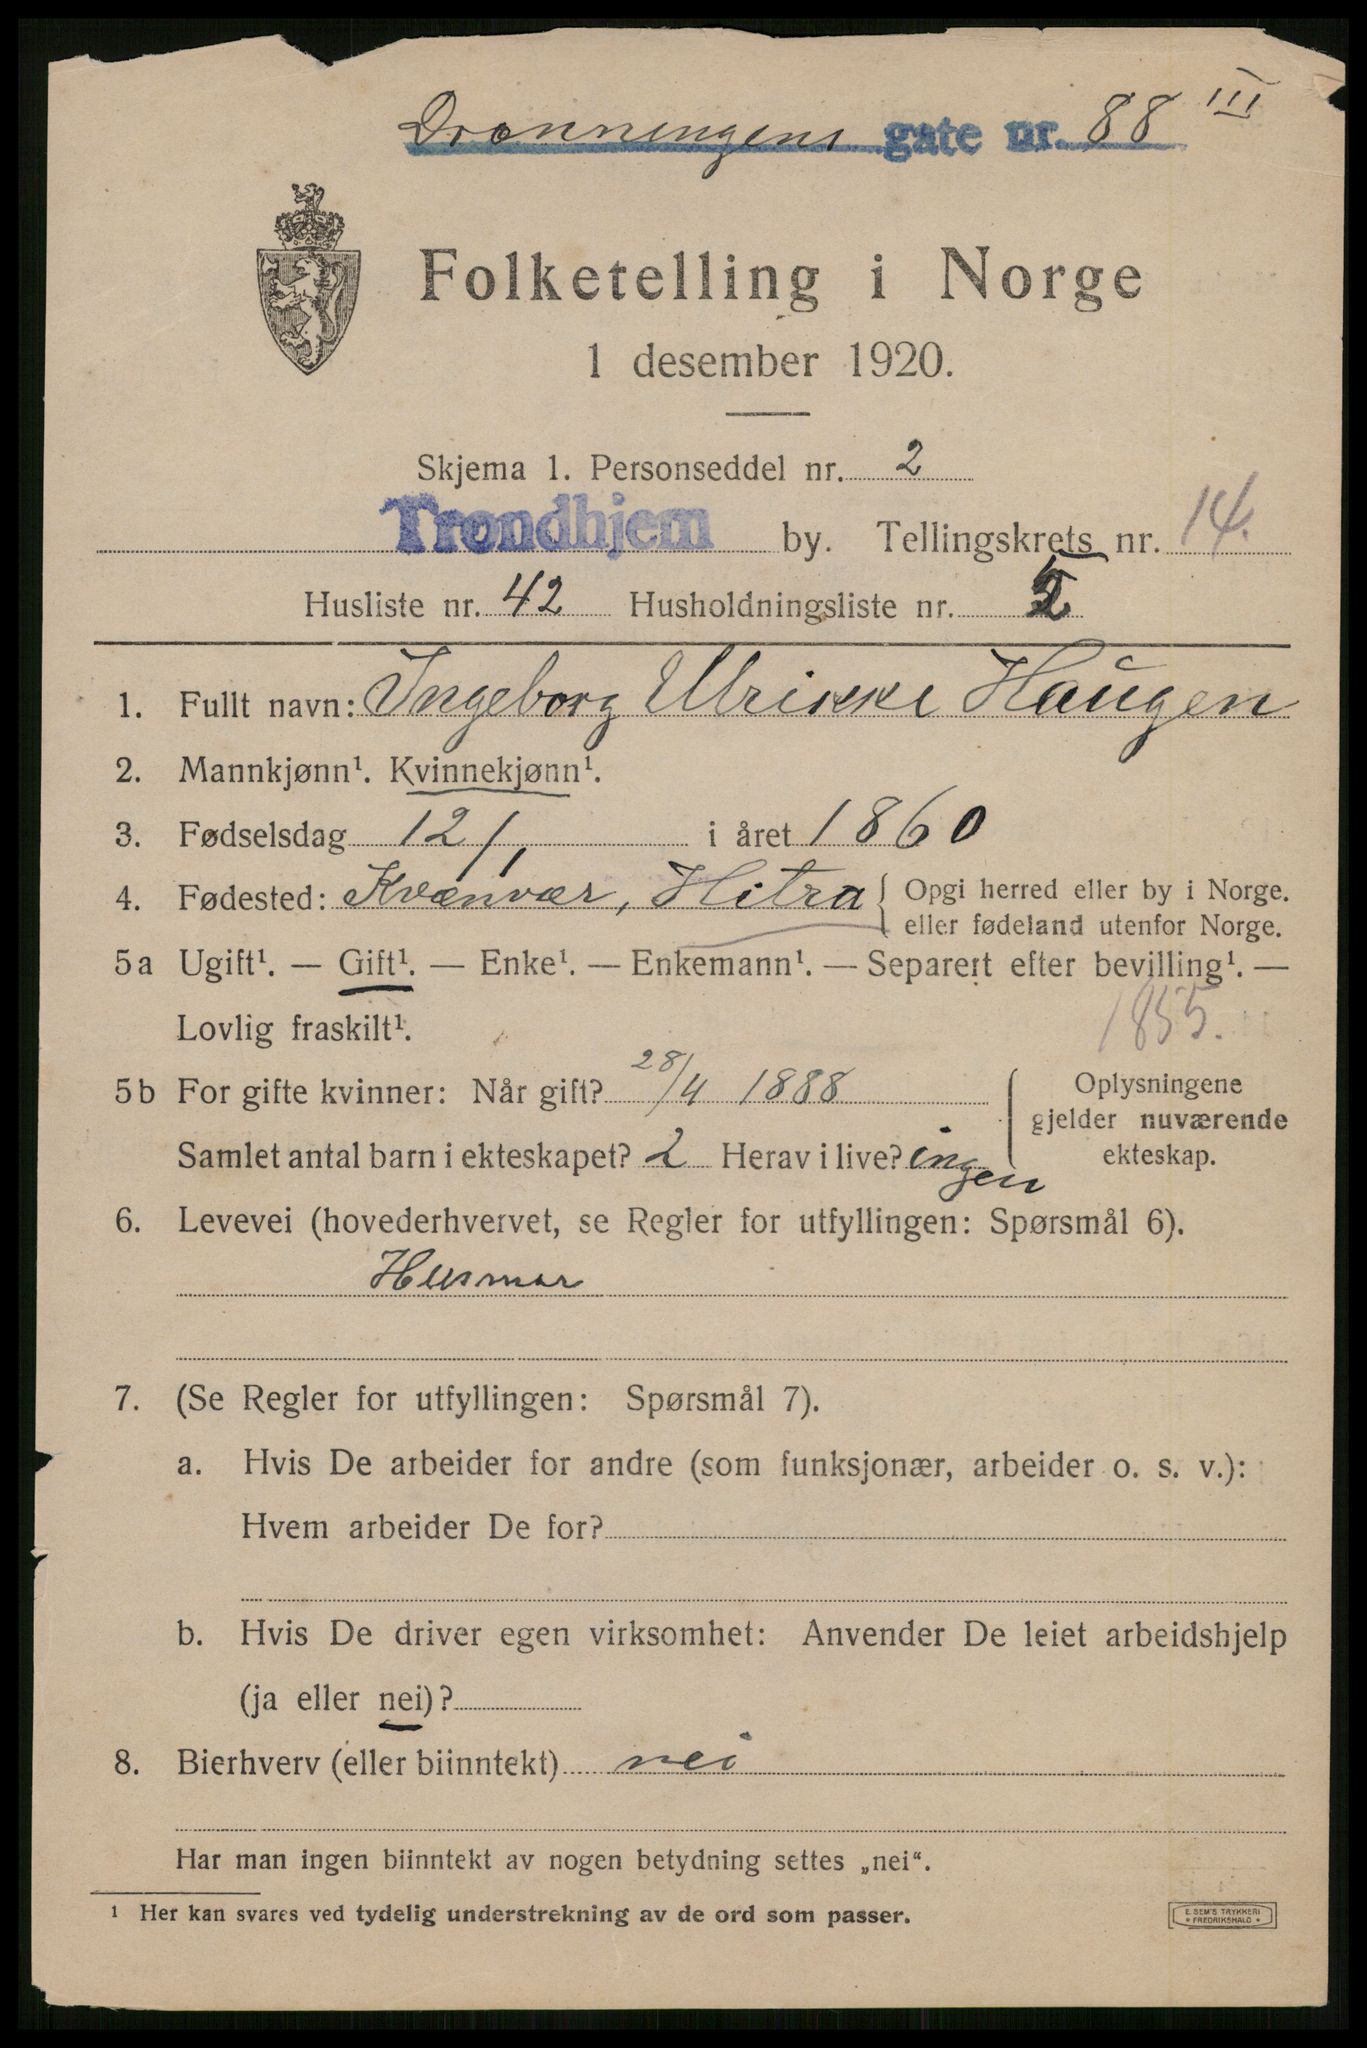 Dronningens gate nr. 88 III
Folketelling i Norge
1 desember 1920.
Skjema 1. Personseddel nr. 2
Trondhjem by. Tellingskrets nr. 14.
Husliste nr. 42 Husholdningsliste nr. 5
1. Fullt navn: Ingeborg Ulrikke Haugen
2. Mannkjønn¹. Kvinnekjønn¹.
3. Fødselsdag 12/1 i året 1860
4. Fødested: Kvænvær, Hitra { Opgi herred eller by i Norge.
eller fødeland utenfor Norge.
5a Ugift¹. — Gift¹. — Enke¹. — Enkemann¹. — Separert efter bevilling¹. —
Lovlig fraskilt¹. 1855.
5b For gifte kvinner: Når gift? 28/4 1888 { Oplysningene
gjelder nuværende
Samlet antal barn i ekteskapet? 2 Herav i live? ingen ekteskap.
6. Levevei (hovederhvervet, se Regler for utfyllingen: Spørsmål 6).
Husmor
7. (Se Regler for utfyllingen: Spørsmål 7).
a. Hvis De arbeider for andre (som funksjonær, arbeider o. s. v.):
Hvem arbeider De for?
b. Hvis De driver egen virksomhet: Anvender De leiet arbeidshjelp
(ja eller nei)?
8. Bierhverv (eller biinntekt) nei
Har man ingen biinntekt av nogen betydning settes „nei“.
¹ Her kan svares ved tydelig understrekning av de ord som passer.
E. SEM'S TRYKKERI
* FREDRIKSHALD *